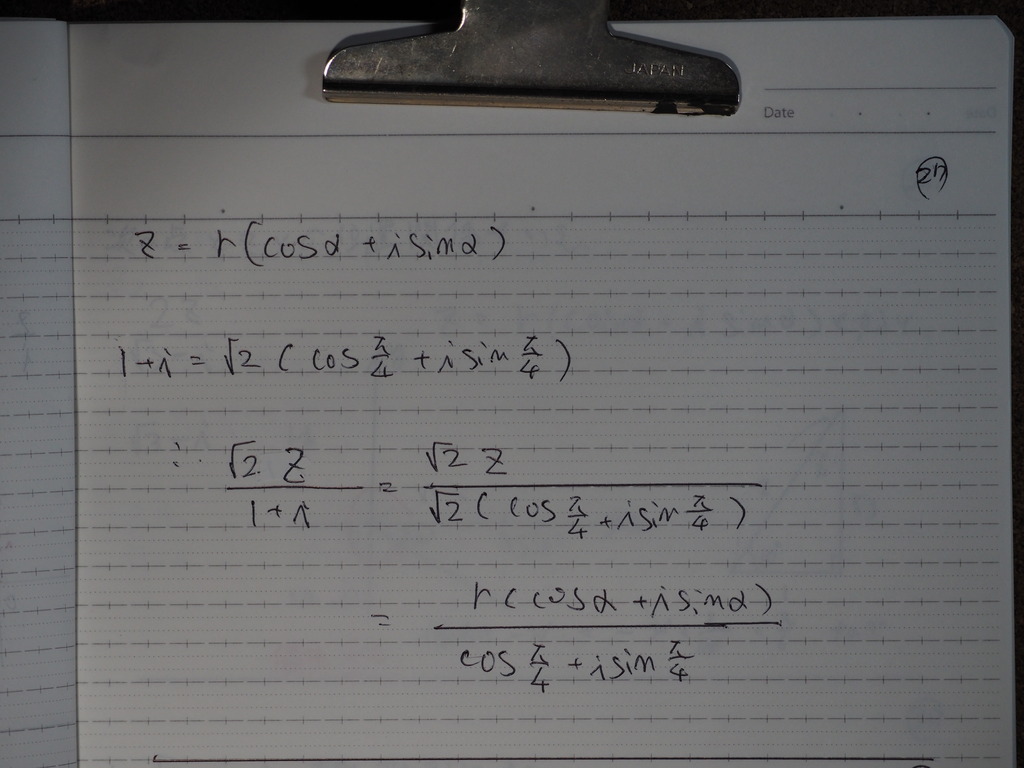 JAPAN
Date
z = r(cosα + i sinα)
1+i = √2 ( cos π/4 + i sin π/4 )
∴ √2 z / 1+i = √2 z / √2 ( cos π/4 + i sin π/4 )
= r ( cosα + i sinα ) / cos π/4 + i sin π/4